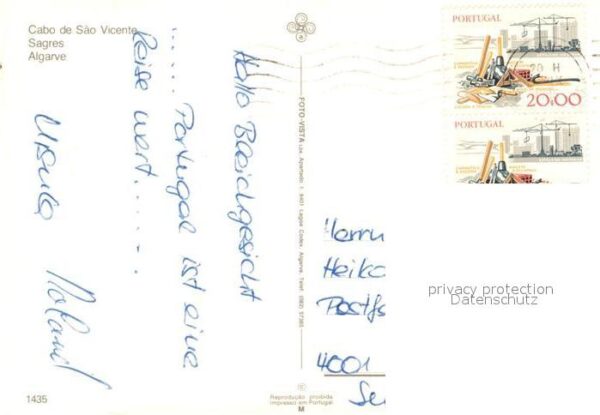 Cabo de São Vicente
Sagres
Algarve
Hallo Bleichgesicht
...... Portugal ist eine
Reise wert......
Ursula Roland
FOTO-VISTA Lda. Apartado 1, 8401 Lagoa Codex, Algarve, Telef. (082) 57365
PORTUGAL
20 H
20$00
PORTUGAL
Herrn
Heiko
Postf
4001
Se
privacy protection
Datenschutz
1435
Reprodução proibida
Impresso em Portugal
M